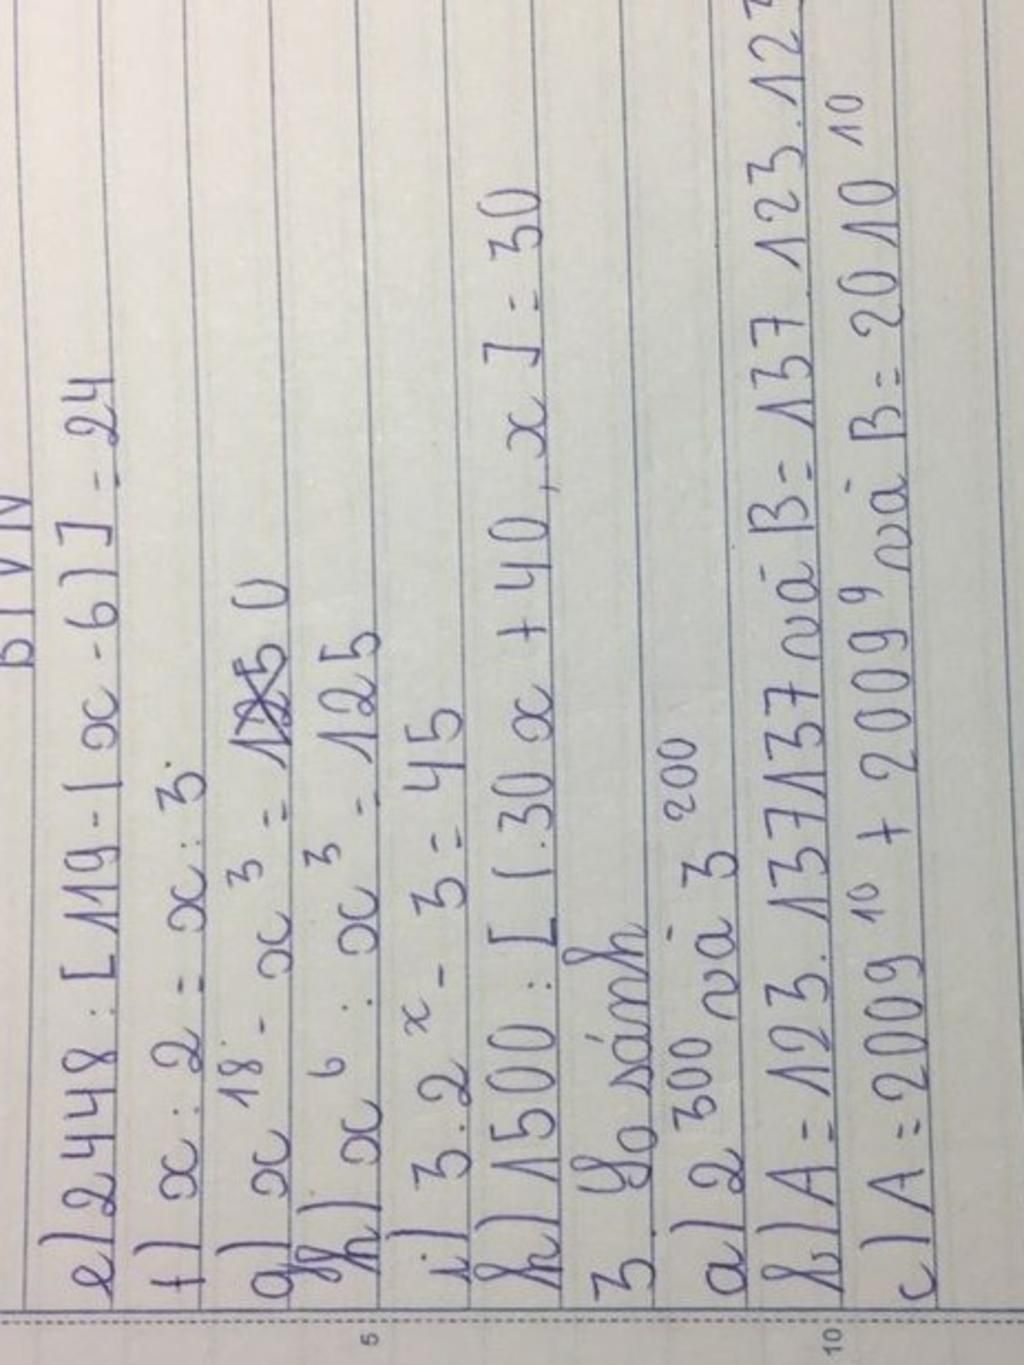 BTVN
e) 2448 : [ 119 - ( x - 6 ) ] = 24
f) x : 2 = x : 3
g) x¹⁸ - x³ = 0
h) x⁶ : x³ = 125
i) 3 . 2ˣ - 3 = 45
k) 1500 : [ ( 30 x + 40 , x ] = 30
3. So sánh
a) 2³⁰⁰ và 3²⁰⁰
b) A = 123 . 137137 và B = 137 . 123 . 123
c) A = 2009¹⁰ + 2009⁹ và B = 2010¹⁰
5
10